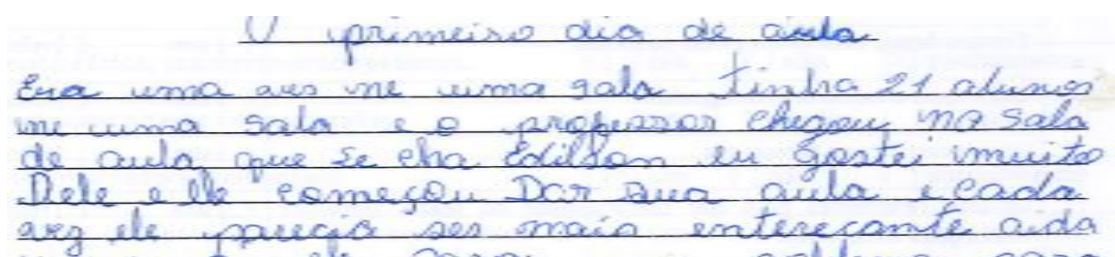 O primeiro dia de aula
Era uma ves ne uma sala tinha 21 alunos
ne uma sala e o professor chegou na sala
de aula que se cha Edilson eu gostei muito
Dele e ele começou Dar sua aula e cada
vez ele parecia ser mais entereçante aida